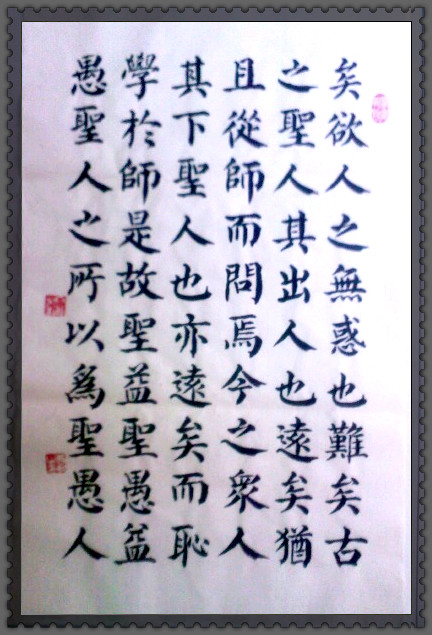 矣欲人之無惑也難矣古
之聖人其出人也遠矣猶
且從師而問焉今之衆人
其下聖人也亦遠矣而恥
學於師是故聖益聖愚益
愚聖人之所以為聖愚人